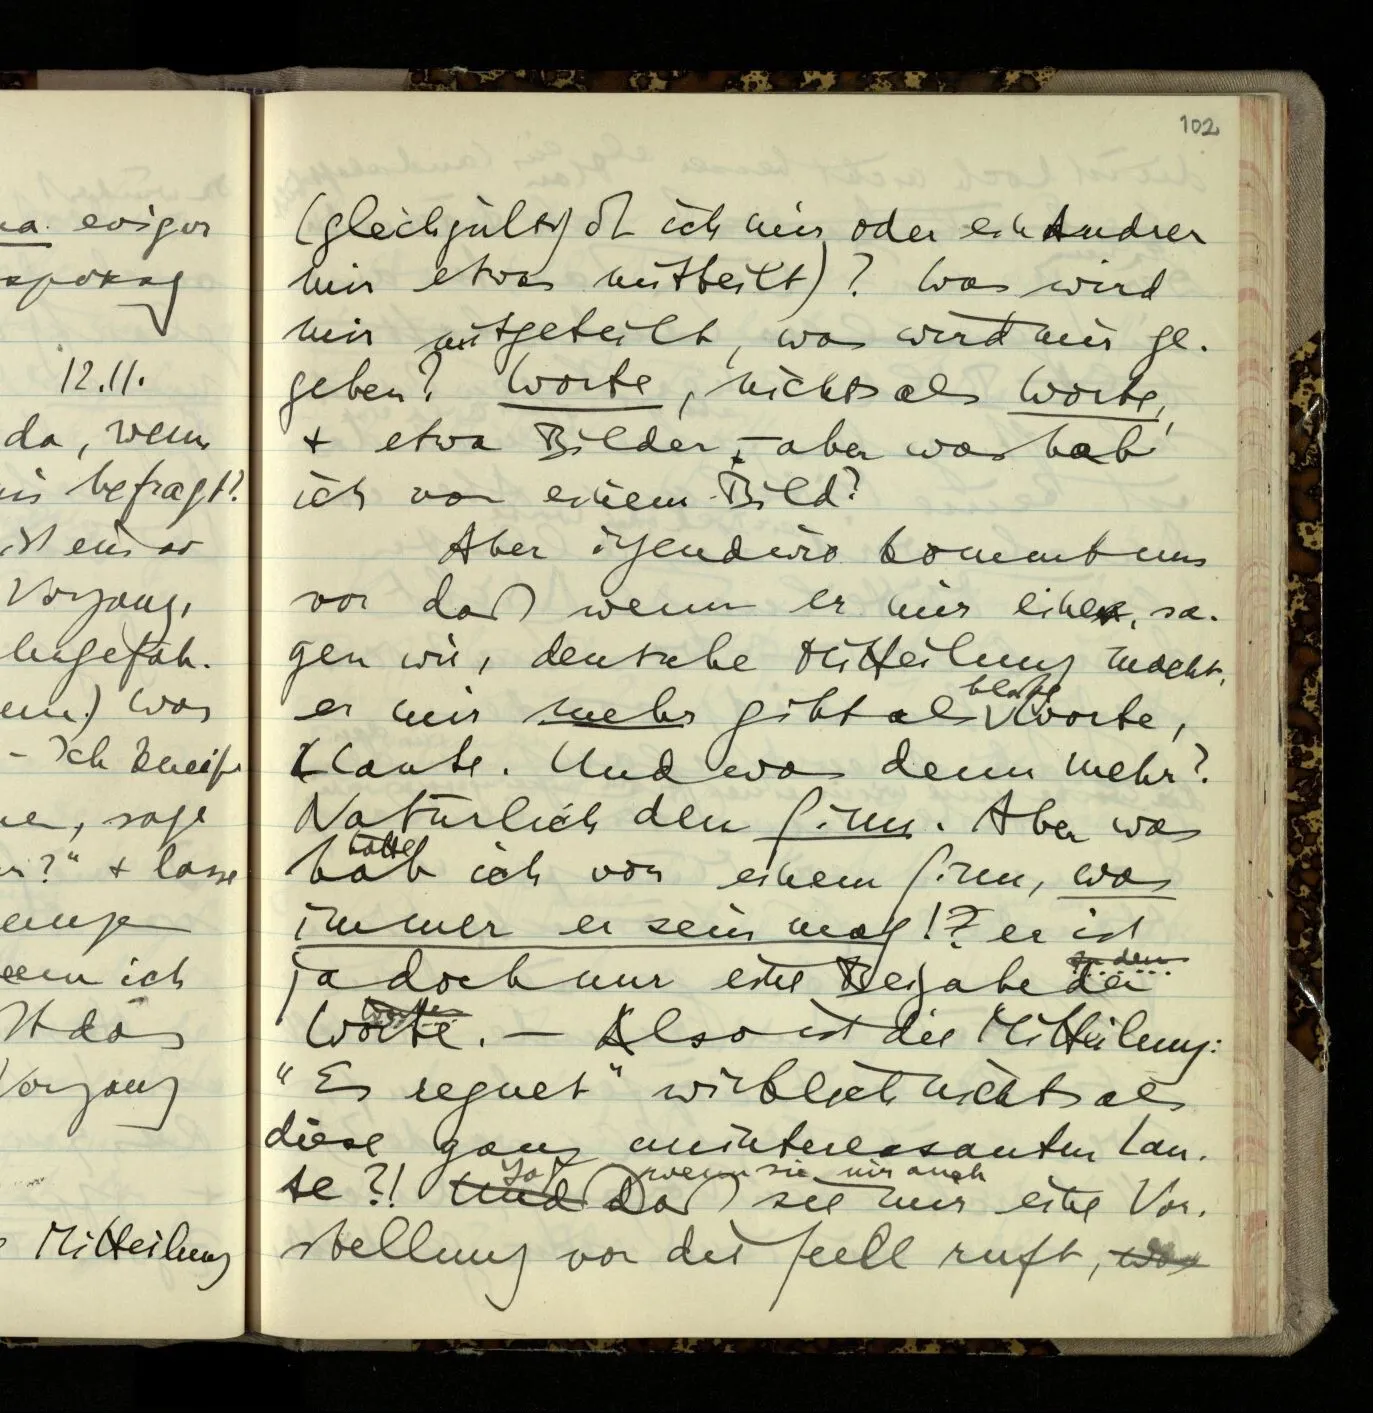 102
(gleichgültig ob ich mir, oder ein Andrer
mir etwas mitteilt)? Was wird
mir mitgeteilt, was wird mir ge-
geben? Worte, nichts als Worte,
+ etwa Bilder, – aber was hab'
ich von einem Bild?
Aber irgendwie kommt uns
vor daß wenn er mir eine, sa-
gen wir, deutsche Mitteilung macht,
bloße
er mir mehr gibt als Worte,
Laute. Und was denn mehr?
Natürlich den Sinn. Aber was
hätte
hab ich von einem Sinn, was
immer er sein mag!? er ist
zu den
ja doch nur eine Beigabe der
Worten
Worte. – Also ist die Mitteilung:
"Es regnet" wirklich nichts als
diese ganz uninteressanten Lau-
Ja wenn sie mir auch
te?! Und Daß sie mir eine Vor-
stellung vor die Seele ruft, was
evigor
12.11.
da, wenn
befragt?
ist ein so
Vorgang,
ungefäh-
was
– Ich kneife
sage
?" + lasse
ich
Ist das
Vorgang
Mitteilung